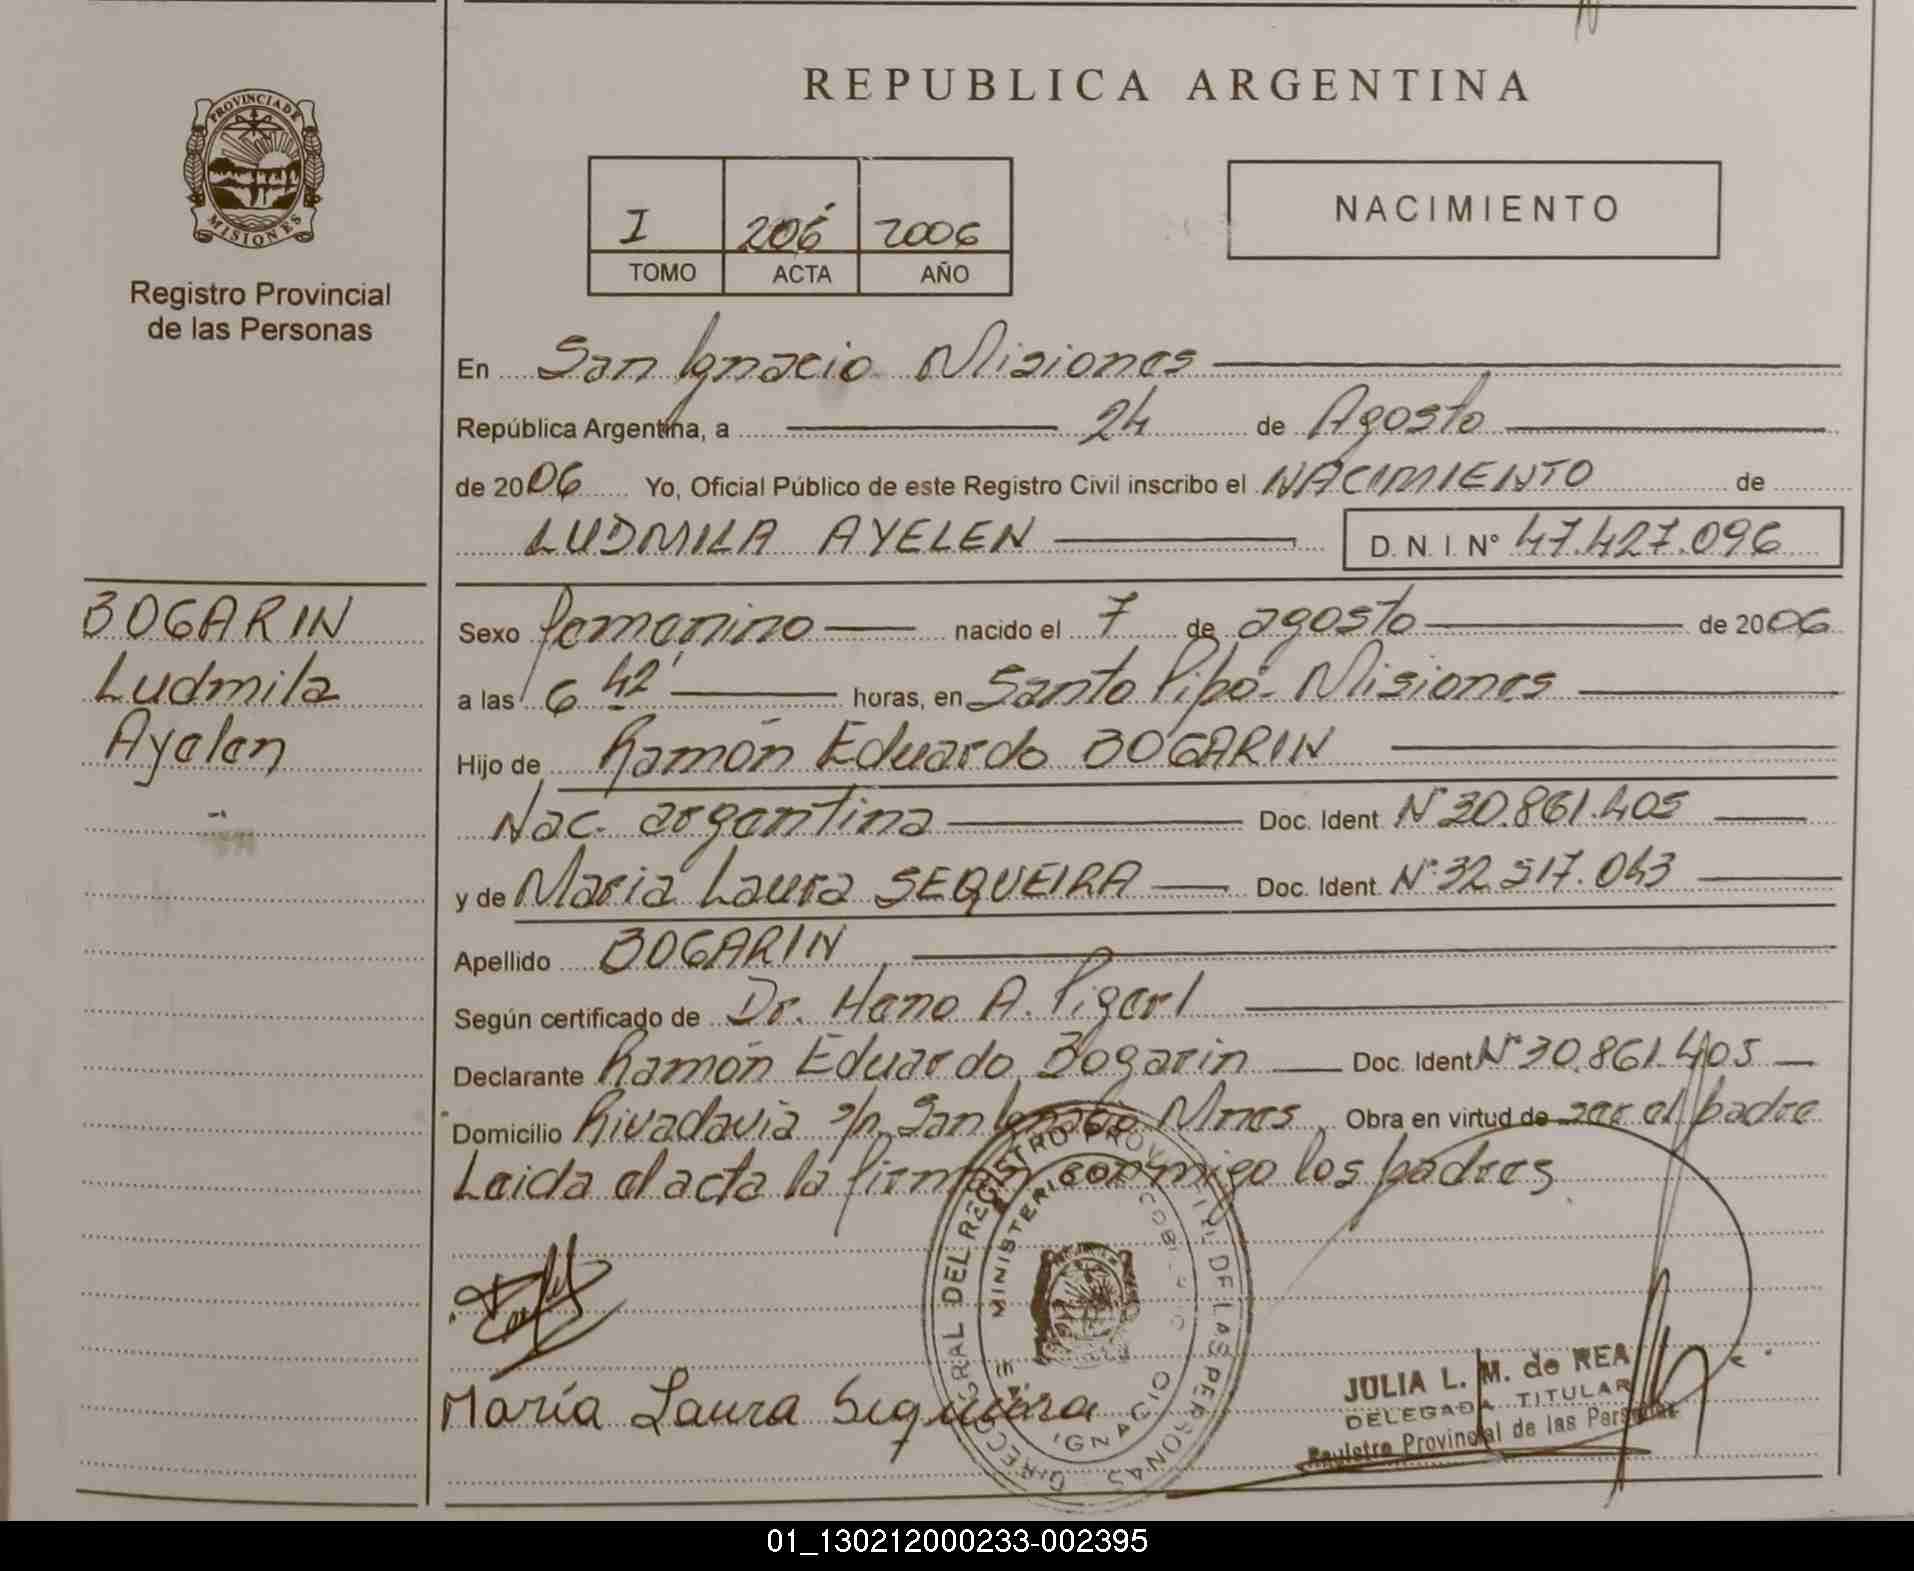 REPUBLICA ARGENTINA
PROVINCIA DE
MISIONES
Registro Provincial
de las Personas
I 206 2006
TOMO ACTA AÑO
NACIMIENTO
En San Ignacio Misiones
República Argentina, a 24 de Agosto
de 2006 Yo, Oficial Público de este Registro Civil inscribo el NACIMIENTO de
LUDMILA AYELEN D.N.I. N° 47.427.096
BOGARIN
Ludmila
Ayelen
Sexo femenino nacido el 7 de agosto de 2006
a las 6 42' horas, en Santo Pipó - Misiones
Hijo de Ramón Eduardo BOGARIN
Nac. argentina Doc. Ident. N° 30.861.405
y de Maria Laura SEQUEIRA Doc. Ident. N° 32.517.043
Apellido BOGARIN
Según certificado de Dr. Hano A. Pigerl
Declarante Ramón Eduardo Bogarin Doc. Ident N° 30.861.405
Domicilio Rivadavia s/n San Ignacio Mnes Obra en virtud de ser el padre
Leida el acta la firman conmigo los padres
María Laura Sequeira
JULIA L. M. de REA
DELEGADA TITULAR
Registro Provincial de las Personas
01_130212000233-002395